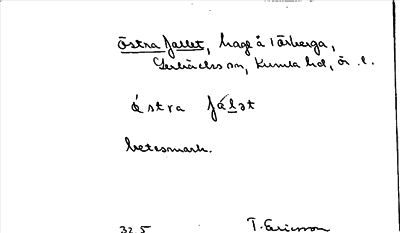 Östra fallet, hage å Torberga,
Lerbäcks sn, Kumla hd, ör. l.
östra fálet
betesmark.
32.5 T. Ericsson